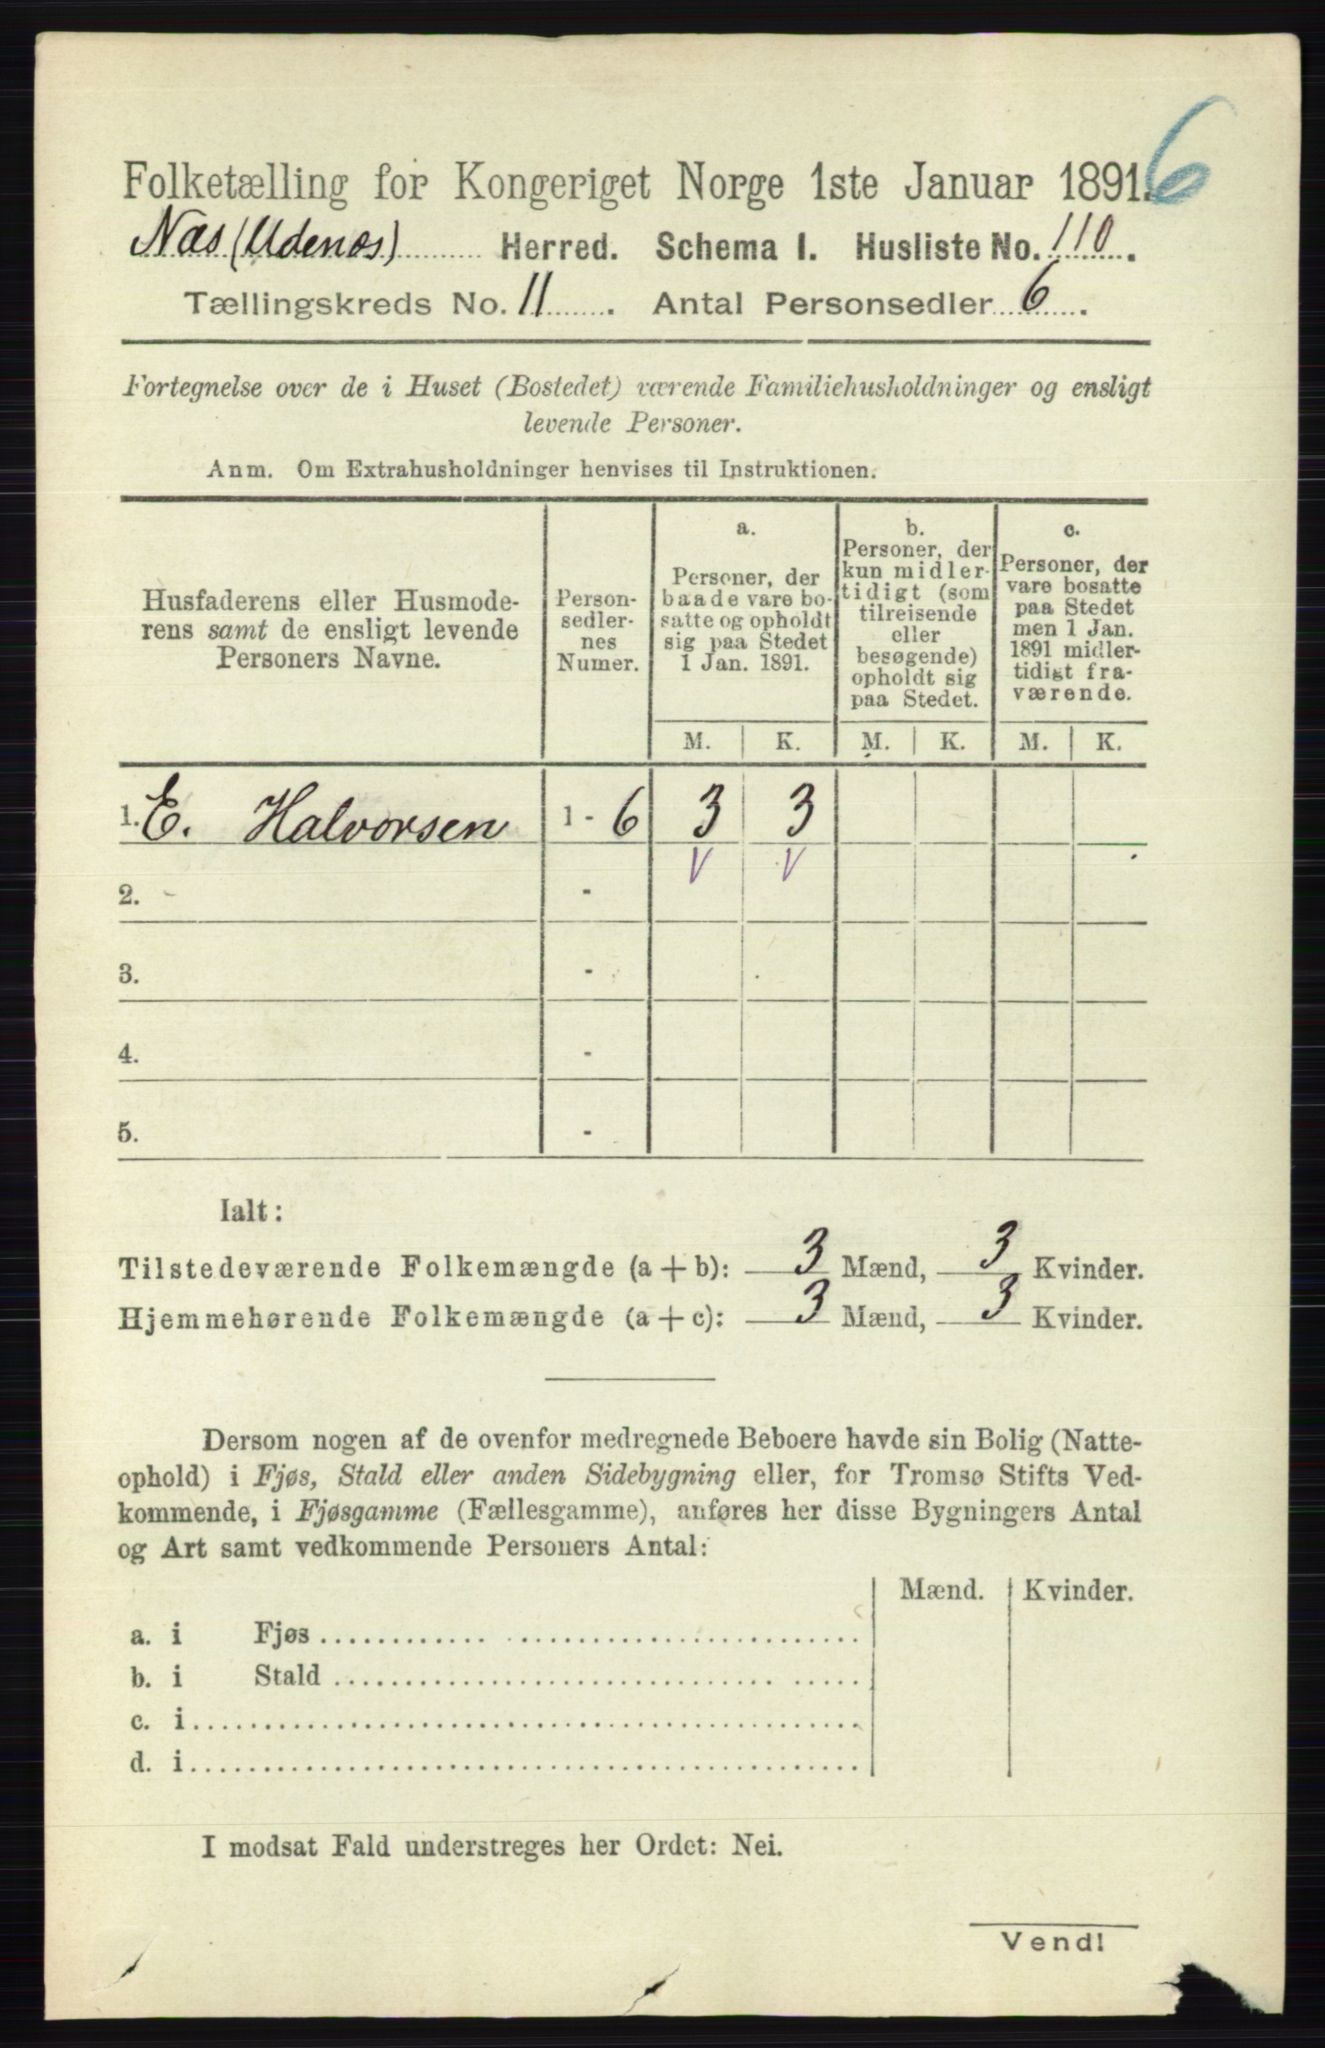 6
Folketælling for Kongeriget Norge 1ste Januar 1891.
Næs (Udenæs) Herred. Schema I. Husliste No. 110.
Tællingskreds No. 11. Antal Personsedler 6.
Fortegnelse over de i Huset (Bostedet) værende Familiehusholdninger og ensligt
levende Personer.
Anm. Om Extrahusholdninger henvises til Instruktionen.
Husfaderens eller Husmode-
rens samt de ensligt levende
Personers Navne.
Person-
sedler-
nes
Numer.
a.
Personer, der
baade vare bo-
satte og opholdt
sig paa Stedet
1 Jan. 1891.
b.
Personer, der
kun midler-
tidigt (som
tilreisende
eller
besøgende)
opholdt sig
paa Stedet.
c.
Personer, der
vare bosatte
paa Stedet
men 1 Jan.
1891 midler-
tidigt fra-
værende.
M. K. M. K. M. K.
1. E. Halvorsen 1 - 6 3 3
V V
2. -
3. -
4. -
5. -
Ialt:
Tilstedeværende Folkemængde (a + b): 3 Mænd, 3 Kvinder.
Hjemmehørende Folkemængde (a + c): 3 Mænd, 3 Kvinder.
Dersom nogen af de ovenfor medregnede Beboere havde sin Bolig (Natte-
ophold) i Fjøs, Stald eller anden Sidebygning eller, for Tromsø Stifts Ved-
kommende, i Fjøsgamme (Fællesgamme), anføres her disse Bygningers Antal
og Art samt vedkommende Personers Antal:
Mænd. Kvinder.
a. i Fjøs
b. i Stald
c. i
d. i
I modsat Fald understreges her Ordet: Nei.
Vend!